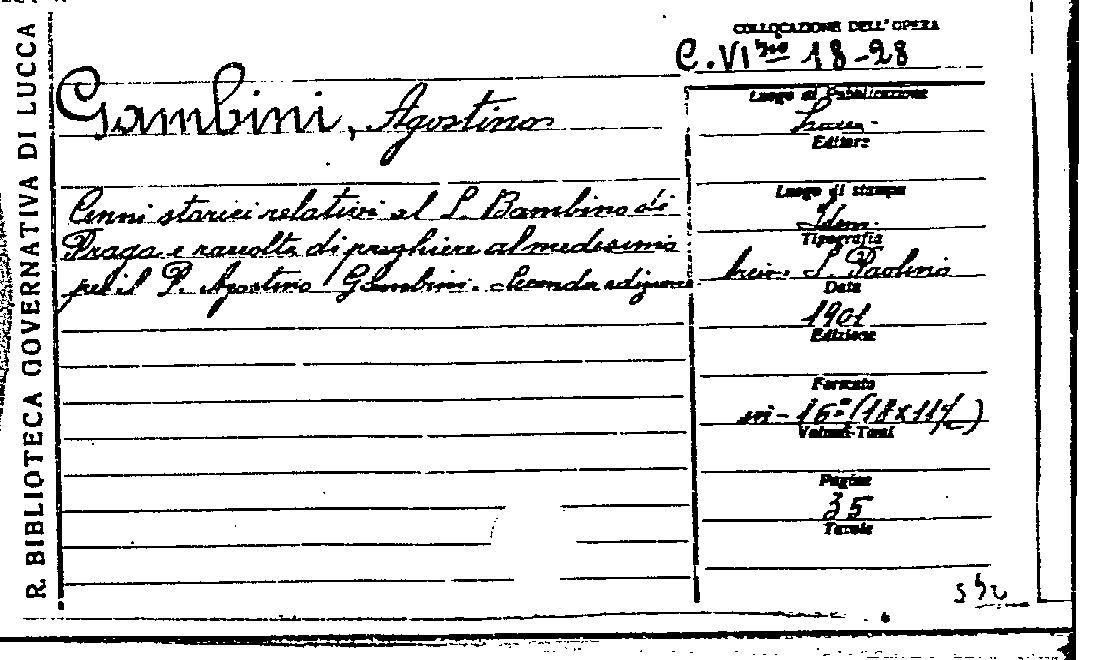 R. BIBLIOTECA GOVERNATIVA DI LUCCA
COLLOCAZIONE DELL'OPERA
C. VI 18-28
Gambini, Agostino
Cenni storici relativi al S. Bambino di
Praga e raccolta di preghiere al medesimo
pel P. Agostino Gambini. Seconda edizione
Luogo di Pubblicazione
Lucca
Editore
Luogo di stampa
Idem.
Tipografia
S. Paolino
Data
1901
Edizione
Formato
in-16º (18x11
Volumi-Tomi
Pagine
35
Tavole